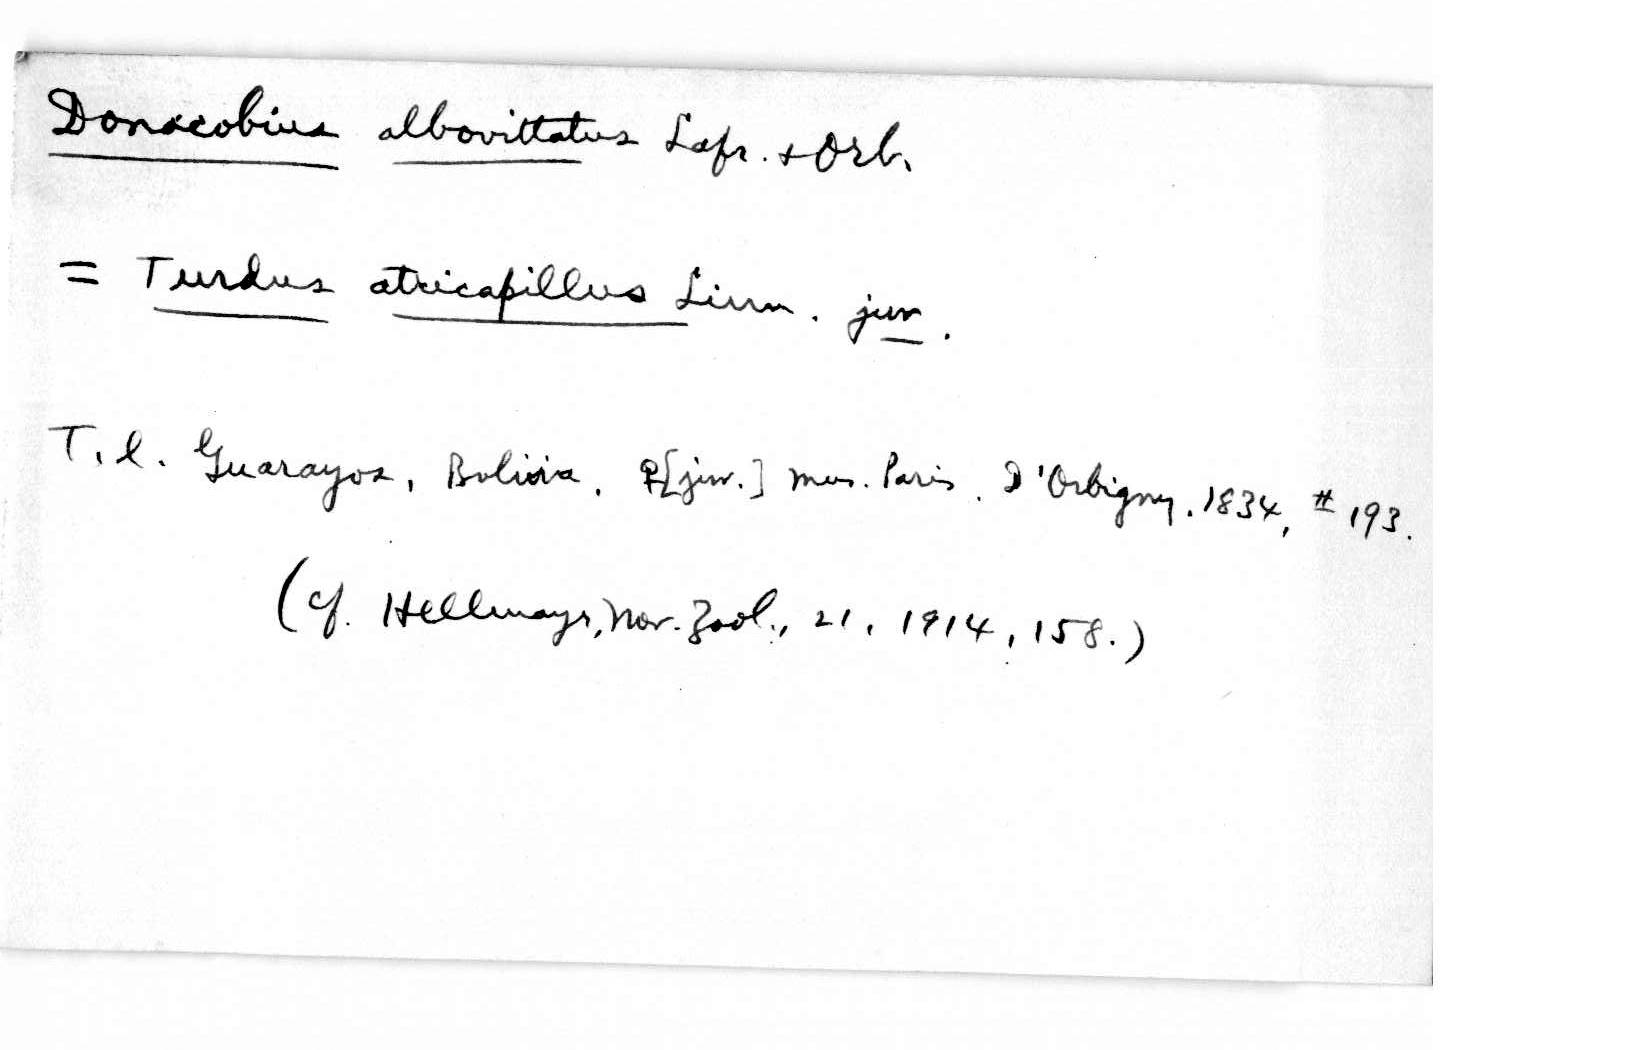 Donacobius albovittatus Lafr. + Orb.
= Turdus atricapillus Linn. jun.
T. l. Guarayos, Bolivia. ♀ [juv.] Mus. Paris. D'Orbigny. 1834, # 193.
(cf. Hellmayr, Nov. Zool., 21, 1914, 158.)